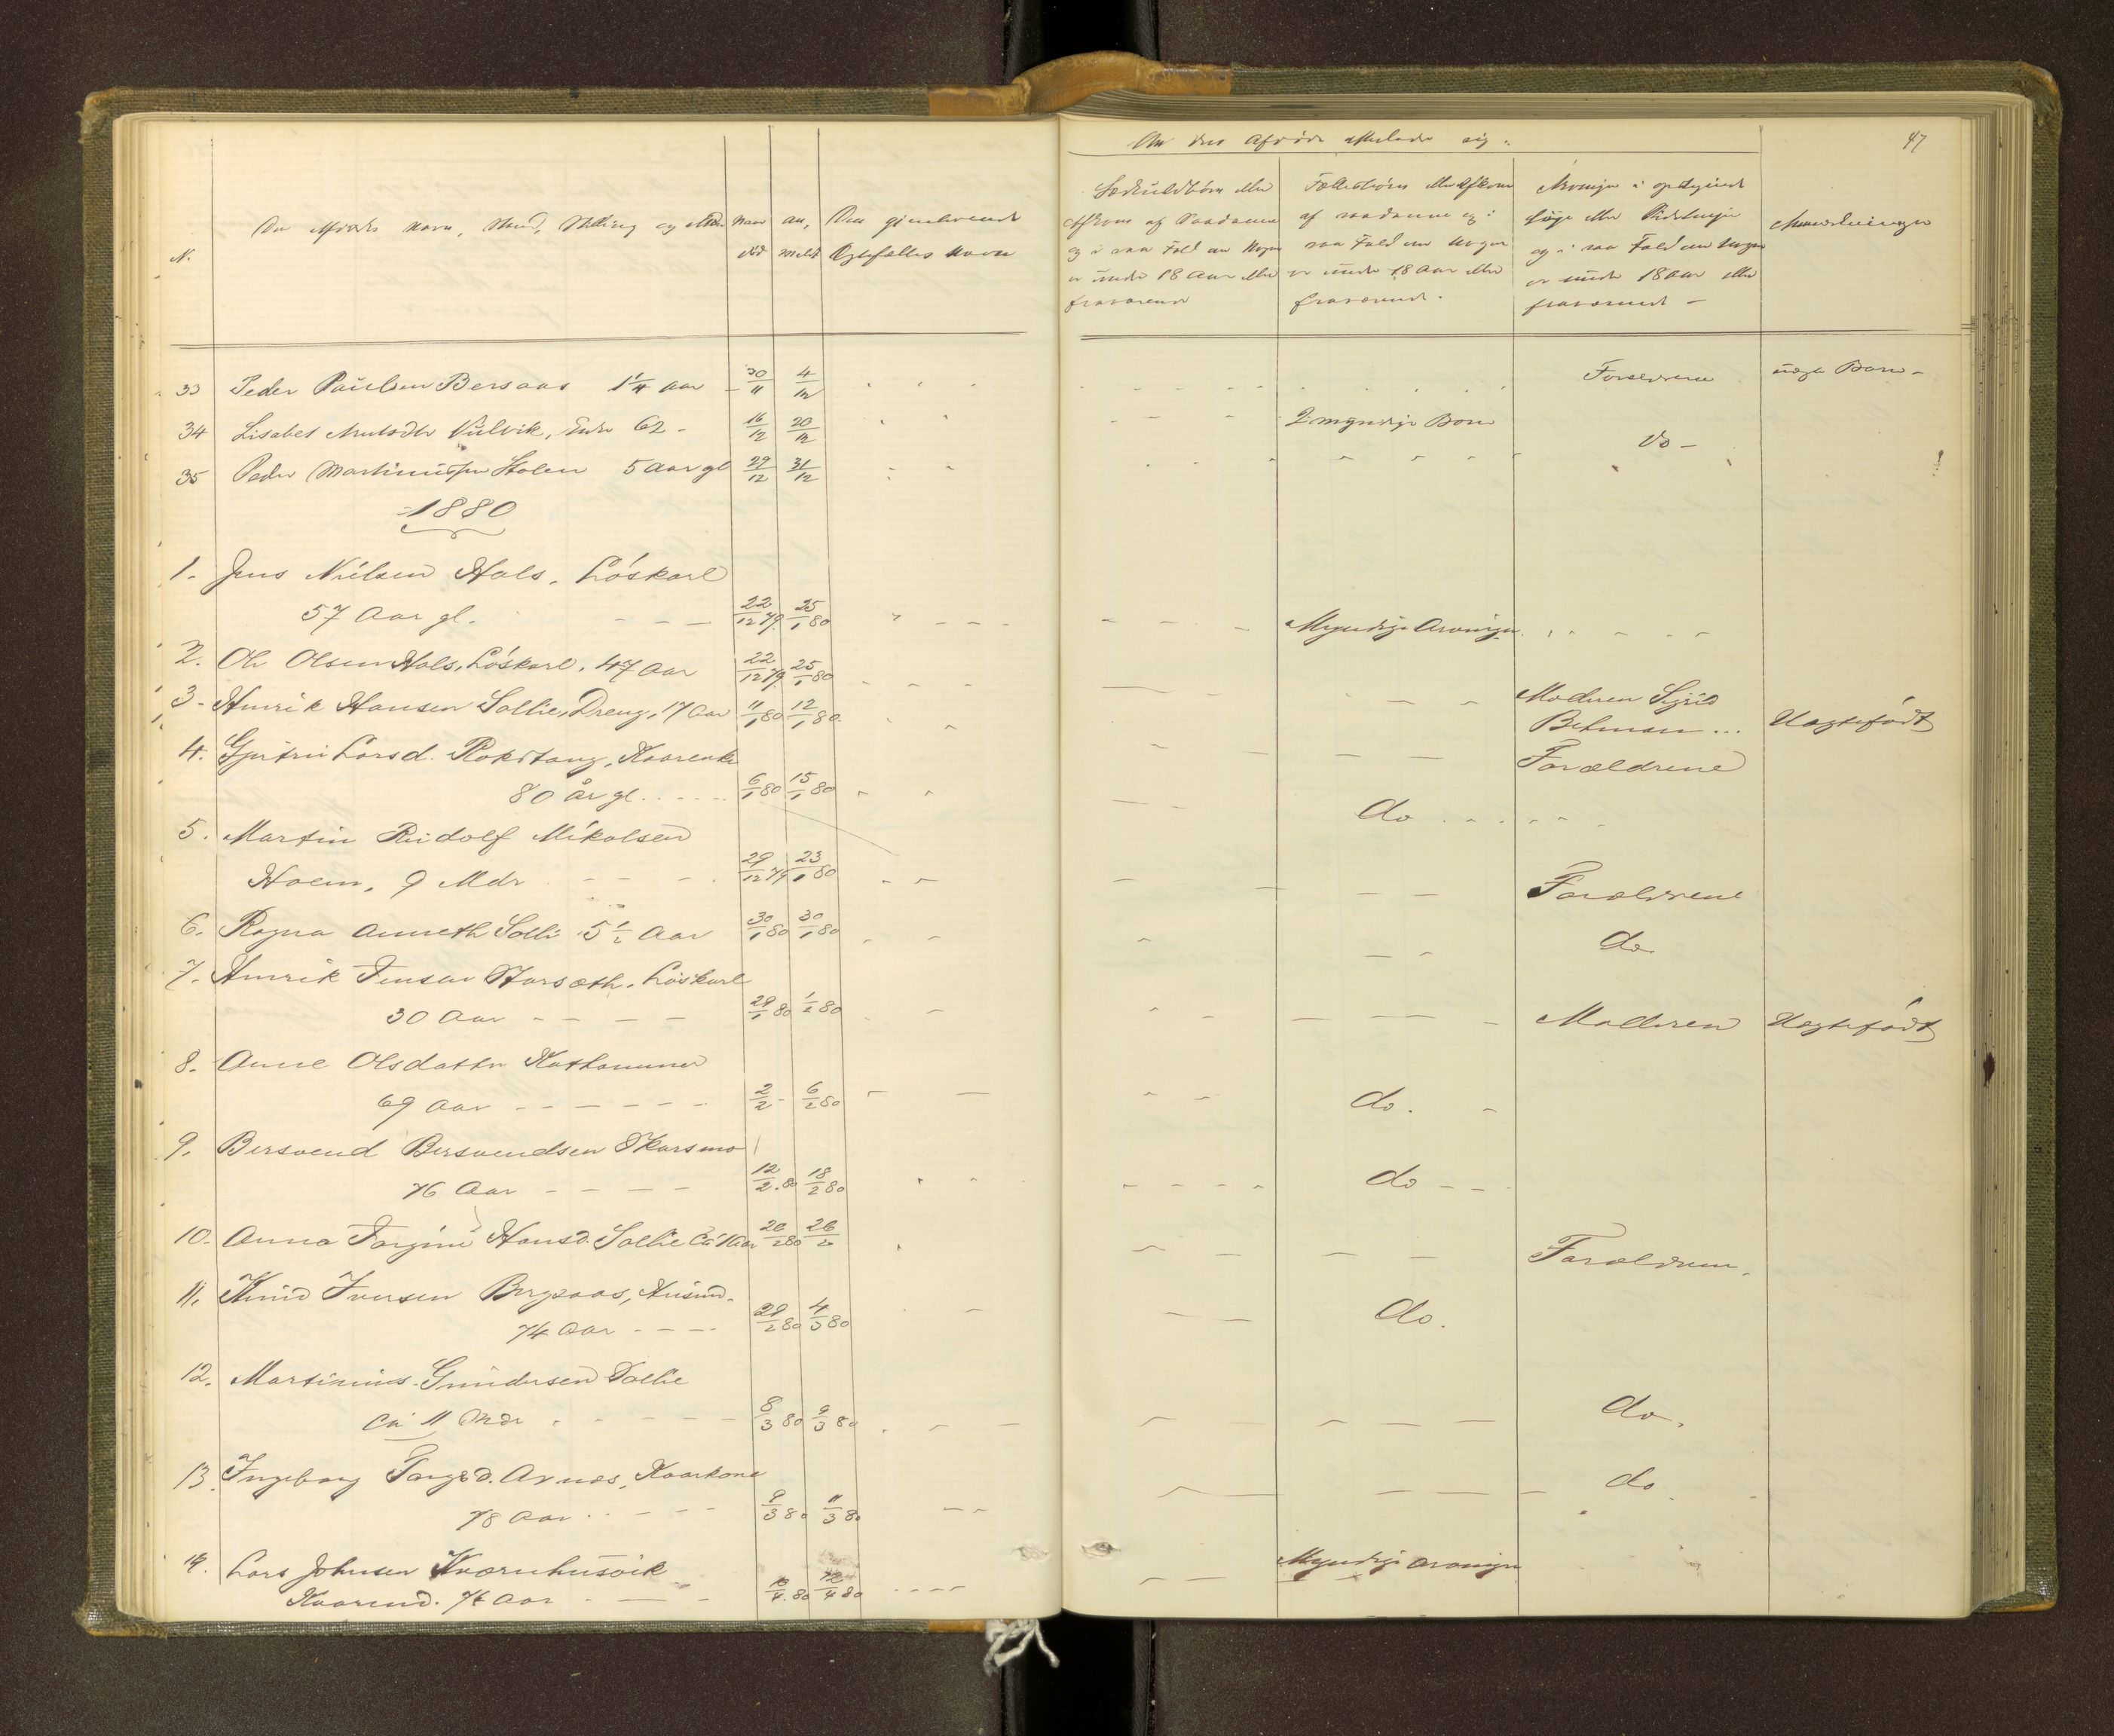 Om den Afdøde efterlader sig:
47
N.
Den Afdødes Navn, Stand, Stilling og Alder
Naar død
an, meldt
Den gjenlevende Ægtefælles Navn
Særkuldbørn eller
Afkom af Saadanne
og i saa Fald om Nogen
er under 18 Aar eller
fraværende
Fællesbørn eller Afkom
af saadanne og i
saa Fald om Nogen
er under 18 Aar eller
fraværende.
Arvinger i opstigende
Linje eller Sidelinjer
og i saa Fald om Nogen
er under 18 Aar eller
fraværende –
Anmerkninger
33 Peder Paulsen Bersaas 1 1/4 Aar – 30/11 4/12 Forældrene uægte Barn –
34 Lisabet Knutsdtr Vulvik, Enke 62 – 16/12 20/12 2 myndige Børn
35 Peder Martinussen Stolen 5 Aar gl 29/12 31/12 do –
1880
1. Jens Nilsen Hals, Löskarl
57 Aar gl. 22/12 79. 25/1 80 Myndige Arvinger
2. Ole Olsen Hals, Löskarl, 47 Aar 22/12 79. 25/1 80
3. Henrik Hansen Sollie, Dreng, 17 Aar 11/1 80 12/1 80. Moderen Sigrid
Betuman ... Uægtefödt
4. Gjertrú Larsd. Rokstang, Kaarenke Forældrene
80 år gl. 6/1 80 15/1 80 do
5. Martin Rudolf Mikalsen
Hoem, 9 Mdr 29/12 79 23/1 80 Forældrene
6. Ragna Anneth Solli 5 1/2 Aar 30/1 80 30/1 80 do.
7. Henrik Jensen Storsæth, Löskarl
30 Aar 29/1 80 1/2 80 Moderen Uægtefödt
8. Anne Olsdatter Kathammer
69 Aar 2/2 – 6/2 80 do.
9. Bersvend Bersvendsen Skarsmo
76 Aar 12/2. 80 18/2 80 do
10. Anna Jorgine Hansd. Sollie Ca 1 Aar 26/2 80 26/2 Forældrene.
11. Knud Iversen Bergsaas, Husmd.
74 Aar 29/2 80 4/3 80 do.
12. Martinius Gundersen Sollie
Ca 11 Mdr 8/3 80 9/3 80 do.
13. Ingeborg Torgsd. Arnæs, Kaarkone
78 Aar 9/3 80 11/3 80 do
14. Lars Johnsen Kværnhusvik
Kaarmd. 76 Aar 10/4. 80 12/4 80 Myndige Arvinger